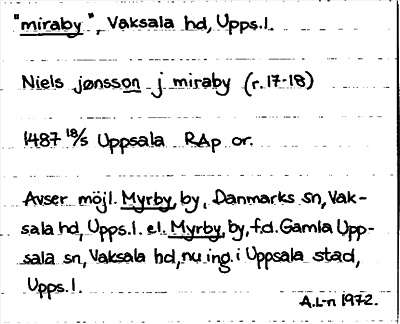 "miraby", Vaksala hd, Upps.l.
Niels jønsson j miraby (r. 17-18)
1487 18/5 Uppsala RAp or.
Avser möjl. Myrby, by, Danmarks sn, Vak-
sala hd, Upps.l. el. Myrby, by, f.d. Gamla Upp-
sala sn, Vaksala hd, nu ing. i Uppsala stad,
Upps.l.
A.L-n 1972.